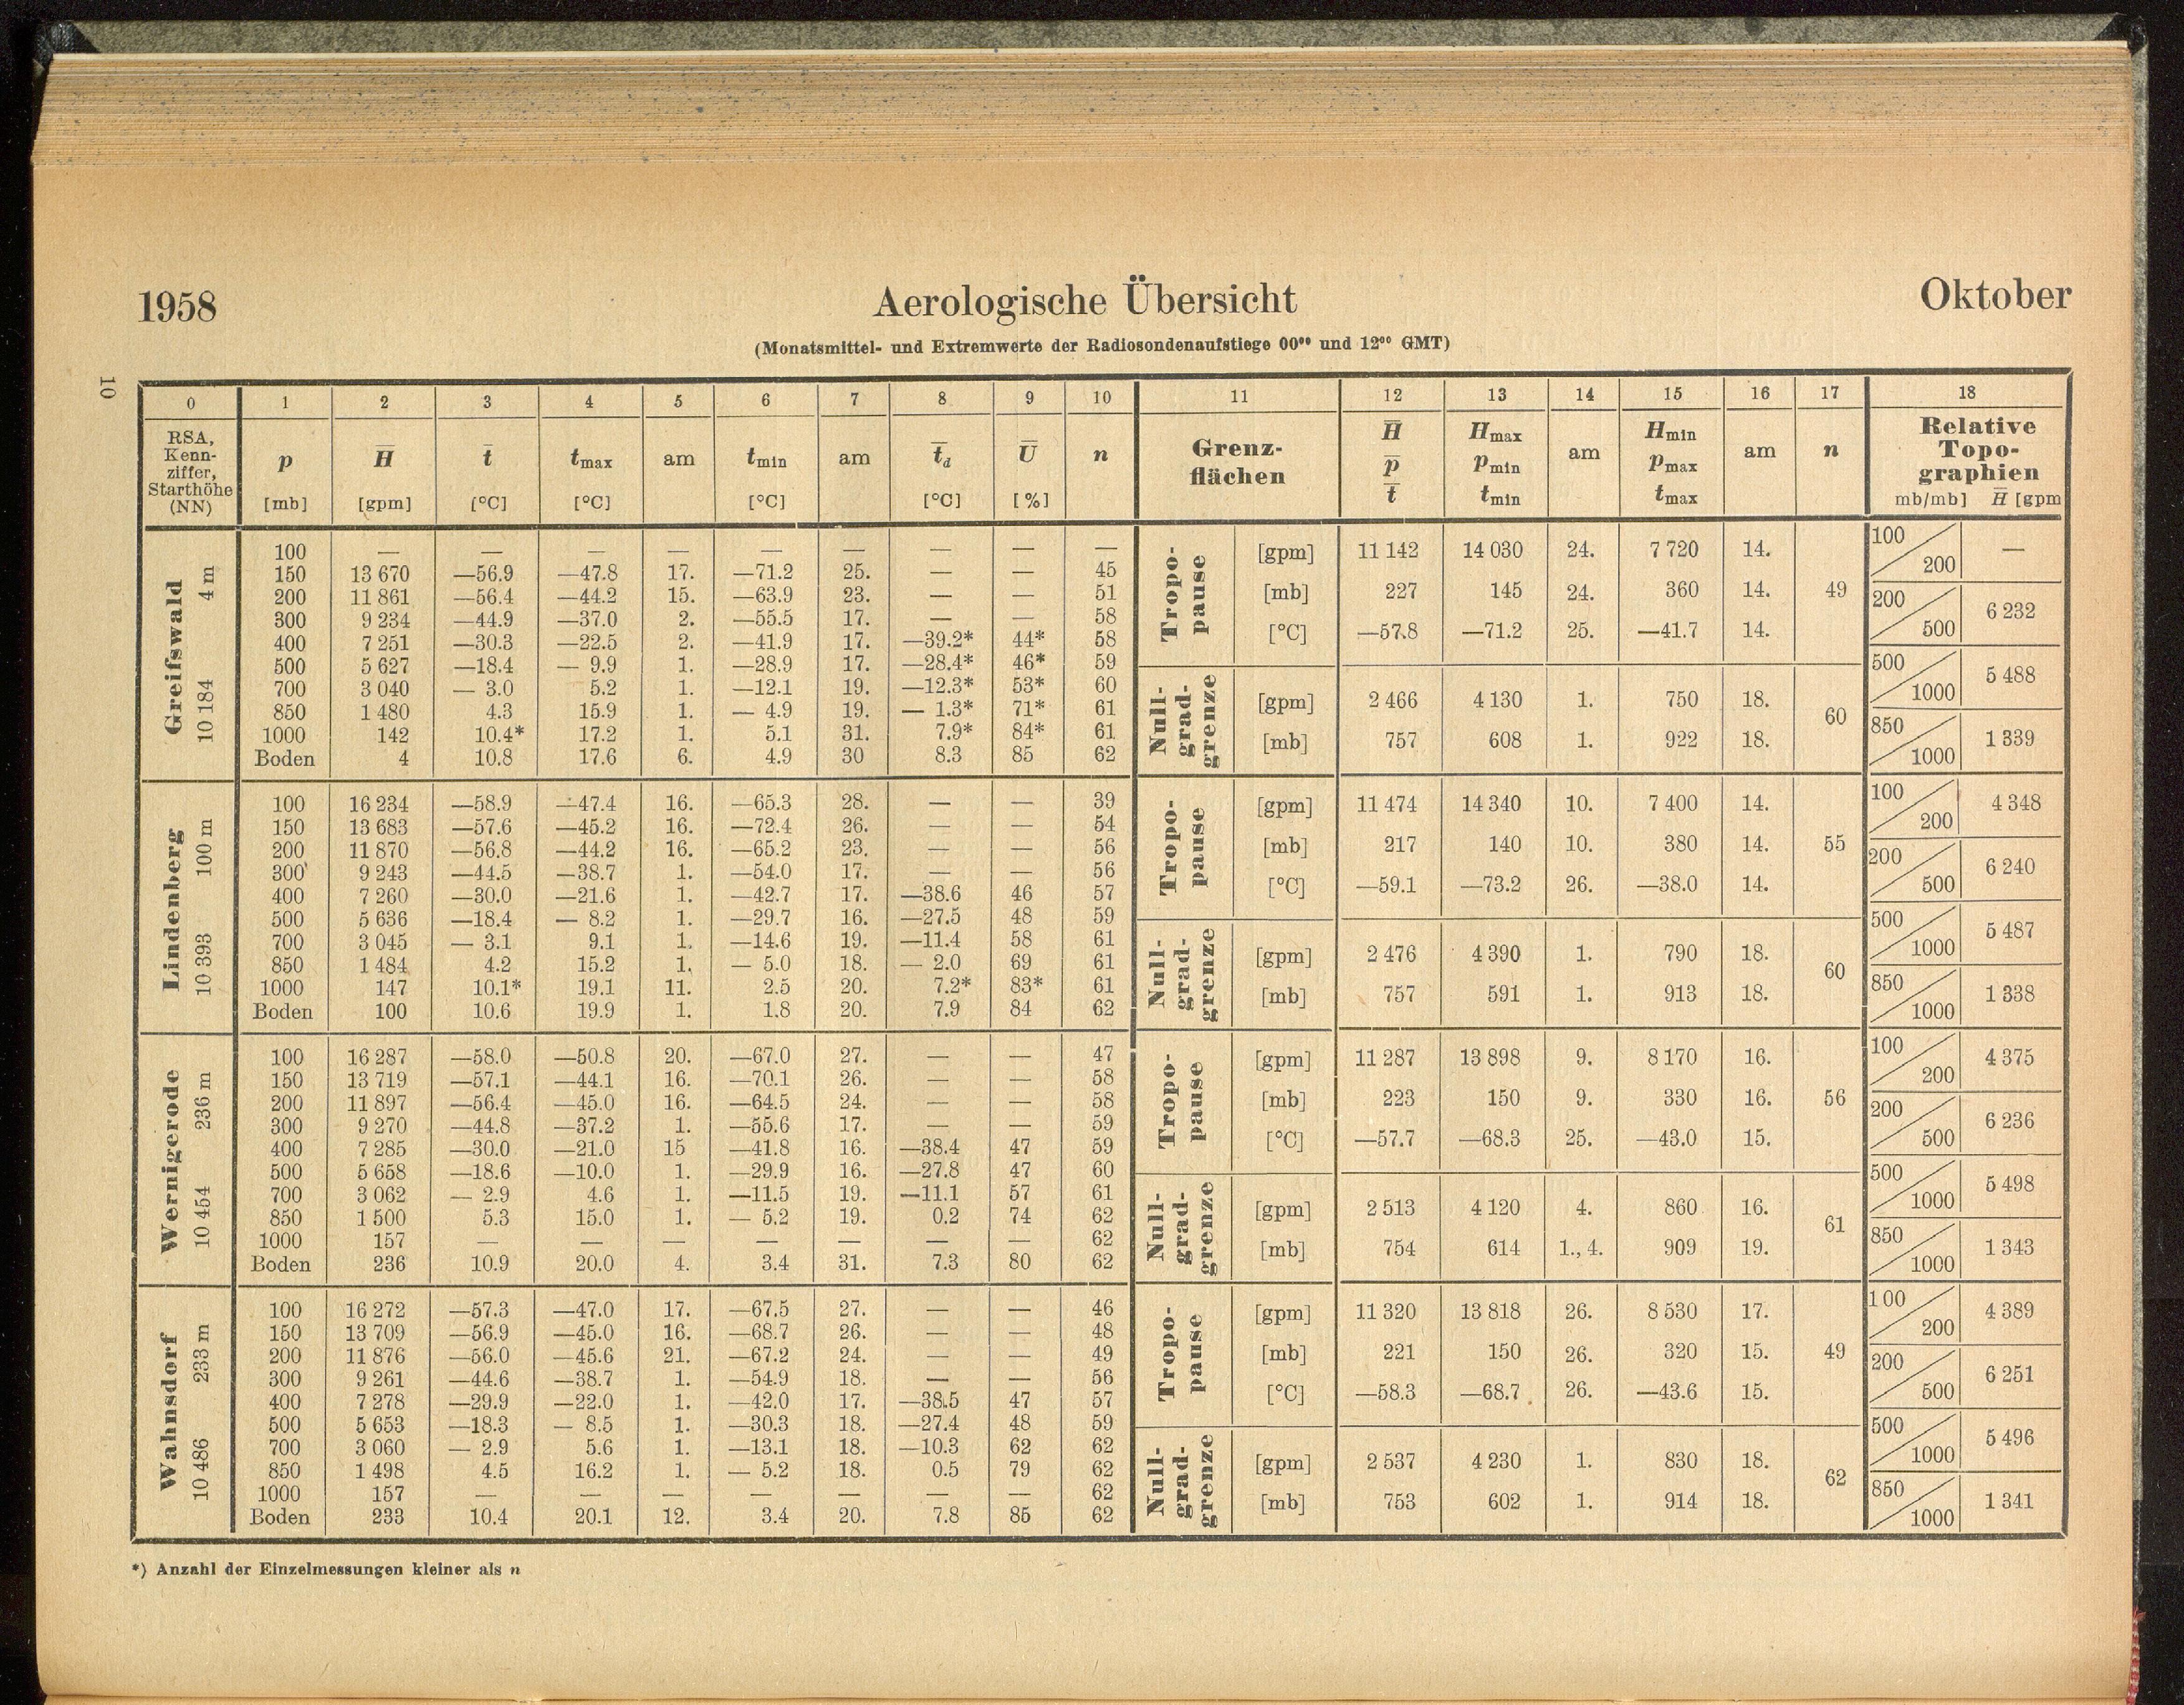 1958 Aerologische Übersicht Oktober
(Monatsmittel- und Extremwerte der Radiosondenaufstiege 00⁰⁰ und 12⁰⁰ GMT)
10
0 1 2 3 4 5 6 7 8 9 10 11 12 13 14 15 16 17 18
RSA, Kennziffer, Starthöhe (NN) p [mb] H̅ [gpm] t̅ [°C] tmax [°C] am tmin [°C] am t̅d [°C] U̅ [%] n Grenzflächen H̅ p̅ t̅ Hmax pmin tmin am Hmin pmax tmax am n Relative Topographien mb/mb] H̅ [gpm
Greifswald 4 m
10 184
100 — — — — — — — — —
150 13 670 —56.9 —47.8 17. —71.2 25. — — 45
200 11 861 —56.4 —44.2 15. —63.9 23. — — 51
300 9 234 —44.9 —37.0 2. —55.5 17. — — 58
400 7 251 —30.3 —22.5 2. —41.9 17. —39.2* 44* 58
500 5 627 —18.4 — 9.9 1. —28.9 17. —28.4* 46* 59
700 3 040 — 3.0 5.2 1. —12.1 19. —12.3* 53* 60
850 1 480 4.3 15.9 1. — 4.9 19. — 1.3* 71* 61
1000 142 10.4* 17.2 1. 5.1 31. 7.9* 84* 61
Boden 4 10.8 17.6 6. 4.9 30 8.3 85 62
Tropopause
[gpm] 11 142 14 030 24. 7 720 14.
[mb] 227 145 24. 360 14. 49
[°C] —57.8 —71.2 25. —41.7 14.
Nullgradgrenze
[gpm] 2 466 4 130 1. 750 18. 60
[mb] 757 608 1. 922 18.
100/200 —
200/500 6 232
500/1000 5 488
850/1000 1 339
Lindenberg 100 m
10 393
100 16 234 —58.9 —47.4 16. —65.3 28. — — 39
150 13 683 —57.6 —45.2 16. —72.4 26. — — 54
200 11 870 —56.8 —44.2 16. —65.2 23. — — 56
300 9 243 —44.5 —38.7 1. —54.0 17. — — 56
400 7 260 —30.0 —21.6 1. —42.7 17. —38.6 46 57
500 5 636 —18.4 — 8.2 1. —29.7 16. —27.5 48 59
700 3 045 — 3.1 9.1 1. —14.6 19. —11.4 58 61
850 1 484 4.2 15.2 1. — 5.0 18. — 2.0 69 61
1000 147 10.1* 19.1 11. 2.5 20. 7.2* 83* 61
Boden 100 10.6 19.9 1. 1.8 20. 7.9 84 62
Tropopause
[gpm] 11 474 14 340 10. 7 400 14.
[mb] 217 140 10. 380 14. 55
[°C] —59.1 —73.2 26. —38.0 14.
Nullgradgrenze
[gpm] 2 476 4 390 1. 790 18. 60
[mb] 757 591 1. 913 18.
100/200 4 348
200/500 6 240
500/1000 5 487
850/1000 1 338
Wernigerode 236 m
10 454
100 16 287 —58.0 —50.8 20. —67.0 27. — — 47
150 13 719 —57.1 —44.1 16. —70.1 26. — — 58
200 11 897 —56.4 —45.0 16. —64.5 24. — — 58
300 9 270 —44.8 —37.2 1. —55.6 17. — — 59
400 7 285 —30.0 —21.0 15 —41.8 16. —38.4 47 59
500 5 658 —18.6 —10.0 1. —29.9 16. —27.8 47 60
700 3 062 — 2.9 4.6 1. —11.5 19. —11.1 57 61
850 1 500 5.3 15.0 1. — 5.2 19. 0.2 74 62
1000 157 — — — — — — — 62
Boden 236 10.9 20.0 4. 3.4 31. 7.3 80 62
Tropopause
[gpm] 11 287 13 898 9. 8 170 16.
[mb] 223 150 9. 330 16. 56
[°C] —57.7 —68.3 25. —43.0 15.
Nullgradgrenze
[gpm] 2 513 4 120 4. 860 16. 61
[mb] 754 614 1., 4. 909 19.
100/200 4 375
200/500 6 236
500/1000 5 498
850/1000 1 343
Wahnsdorf 233 m
10 486
100 16 272 —57.3 —47.0 17. —67.5 27. — — 46
150 13 709 —56.9 —45.0 16. —68.7 26. — — 48
200 11 876 —56.0 —45.6 21. —67.2 24. — — 49
300 9 261 —44.6 —38.7 1. —54.9 18. — — 56
400 7 278 —29.9 —22.0 1. —42.0 17. —38.5 47 57
500 5 653 —18.3 — 8.5 1. —30.3 18. —27.4 48 59
700 3 060 — 2.9 5.6 1. —13.1 18. —10.3 62 62
850 1 498 4.5 16.2 1. — 5.2 18. 0.5 79 62
1000 157 — — — — — — — 62
Boden 233 10.4 20.1 12. 3.4 20. 7.8 85 62
Tropopause
[gpm] 11 320 13 818 26. 8 530 17.
[mb] 221 150 26. 320 15. 49
[°C] —58.3 —68.7 26. —43.6 15.
Nullgradgrenze
[gpm] 2 537 4 230 1. 830 18. 62
[mb] 753 602 1. 914 18.
100/200 4 389
200/500 6 251
500/1000 5 496
850/1000 1 341
*) Anzahl der Einzelmessungen kleiner als n